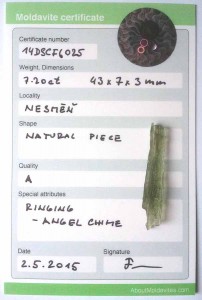 Moldavite certificate
Certificate number
14DSCF6025
Weight, Dimensions
7.20ct 43x7x3mm
Locality
NESMĚŇ
Shape
NATURAL PIECE
Quality
A
Special attributes
RINGING
- ANGEL CHIME
Date
Signature
2.5.2015
AboutMoldavites.com